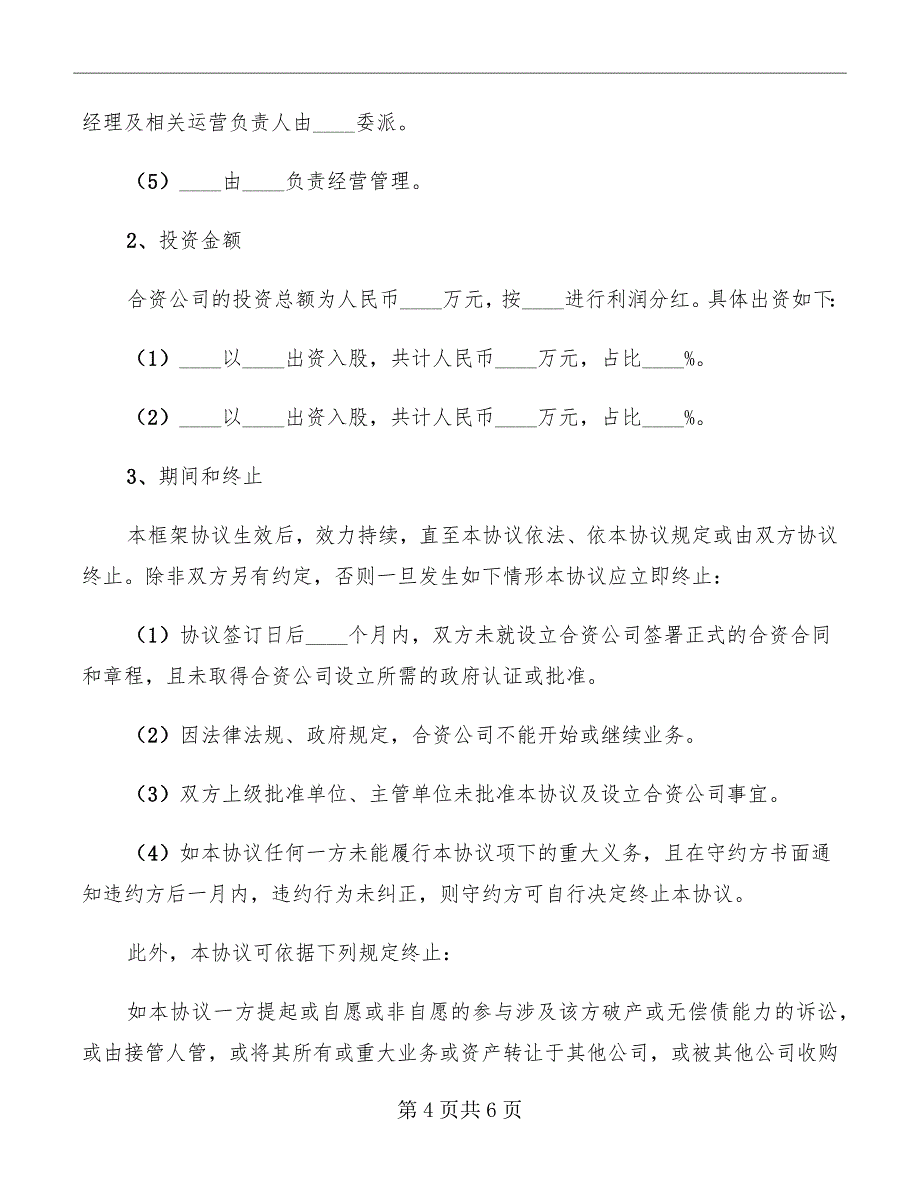 经理及相关运营负责人由____委派。
（5）____由____负责经营管理。
2、投资金额
合资公司的投资总额为人民币____万元，按____进行利润分红。具体出资如下：
（1）____以____出资入股，共计人民币____万元，占比____%。
（2）____以____出资入股，共计人民币____万元，占比____%。
3、期间和终止
本框架协议生效后，效力持续，直至本协议依法、依本协议规定或由双方协议
终止。除非双方另有约定，否则一旦发生如下情形本协议应立即终止：
（1）协议签订日后____个月内，双方未就设立合资公司签署正式的合资合同
和章程，且未取得合资公司设立所需的政府认证或批准。
（2）因法律法规、政府规定，合资公司不能开始或继续业务。
（3）双方上级批准单位、主管单位未批准本协议及设立合资公司事宜。
（4）如本协议任何一方未能履行本协议项下的重大义务，且在守约方书面通
知违约方后一月内，违约行为未纠正，则守约方可自行决定终止本协议。
此外，本协议可依据下列规定终止：
如本协议一方提起或自愿或非自愿的参与涉及该方破产或无偿债能力的诉讼，
或由接管人管，或将其所有或重大业务或资产转让于其他公司，或被其他公司收购
第 4 页共 6 页